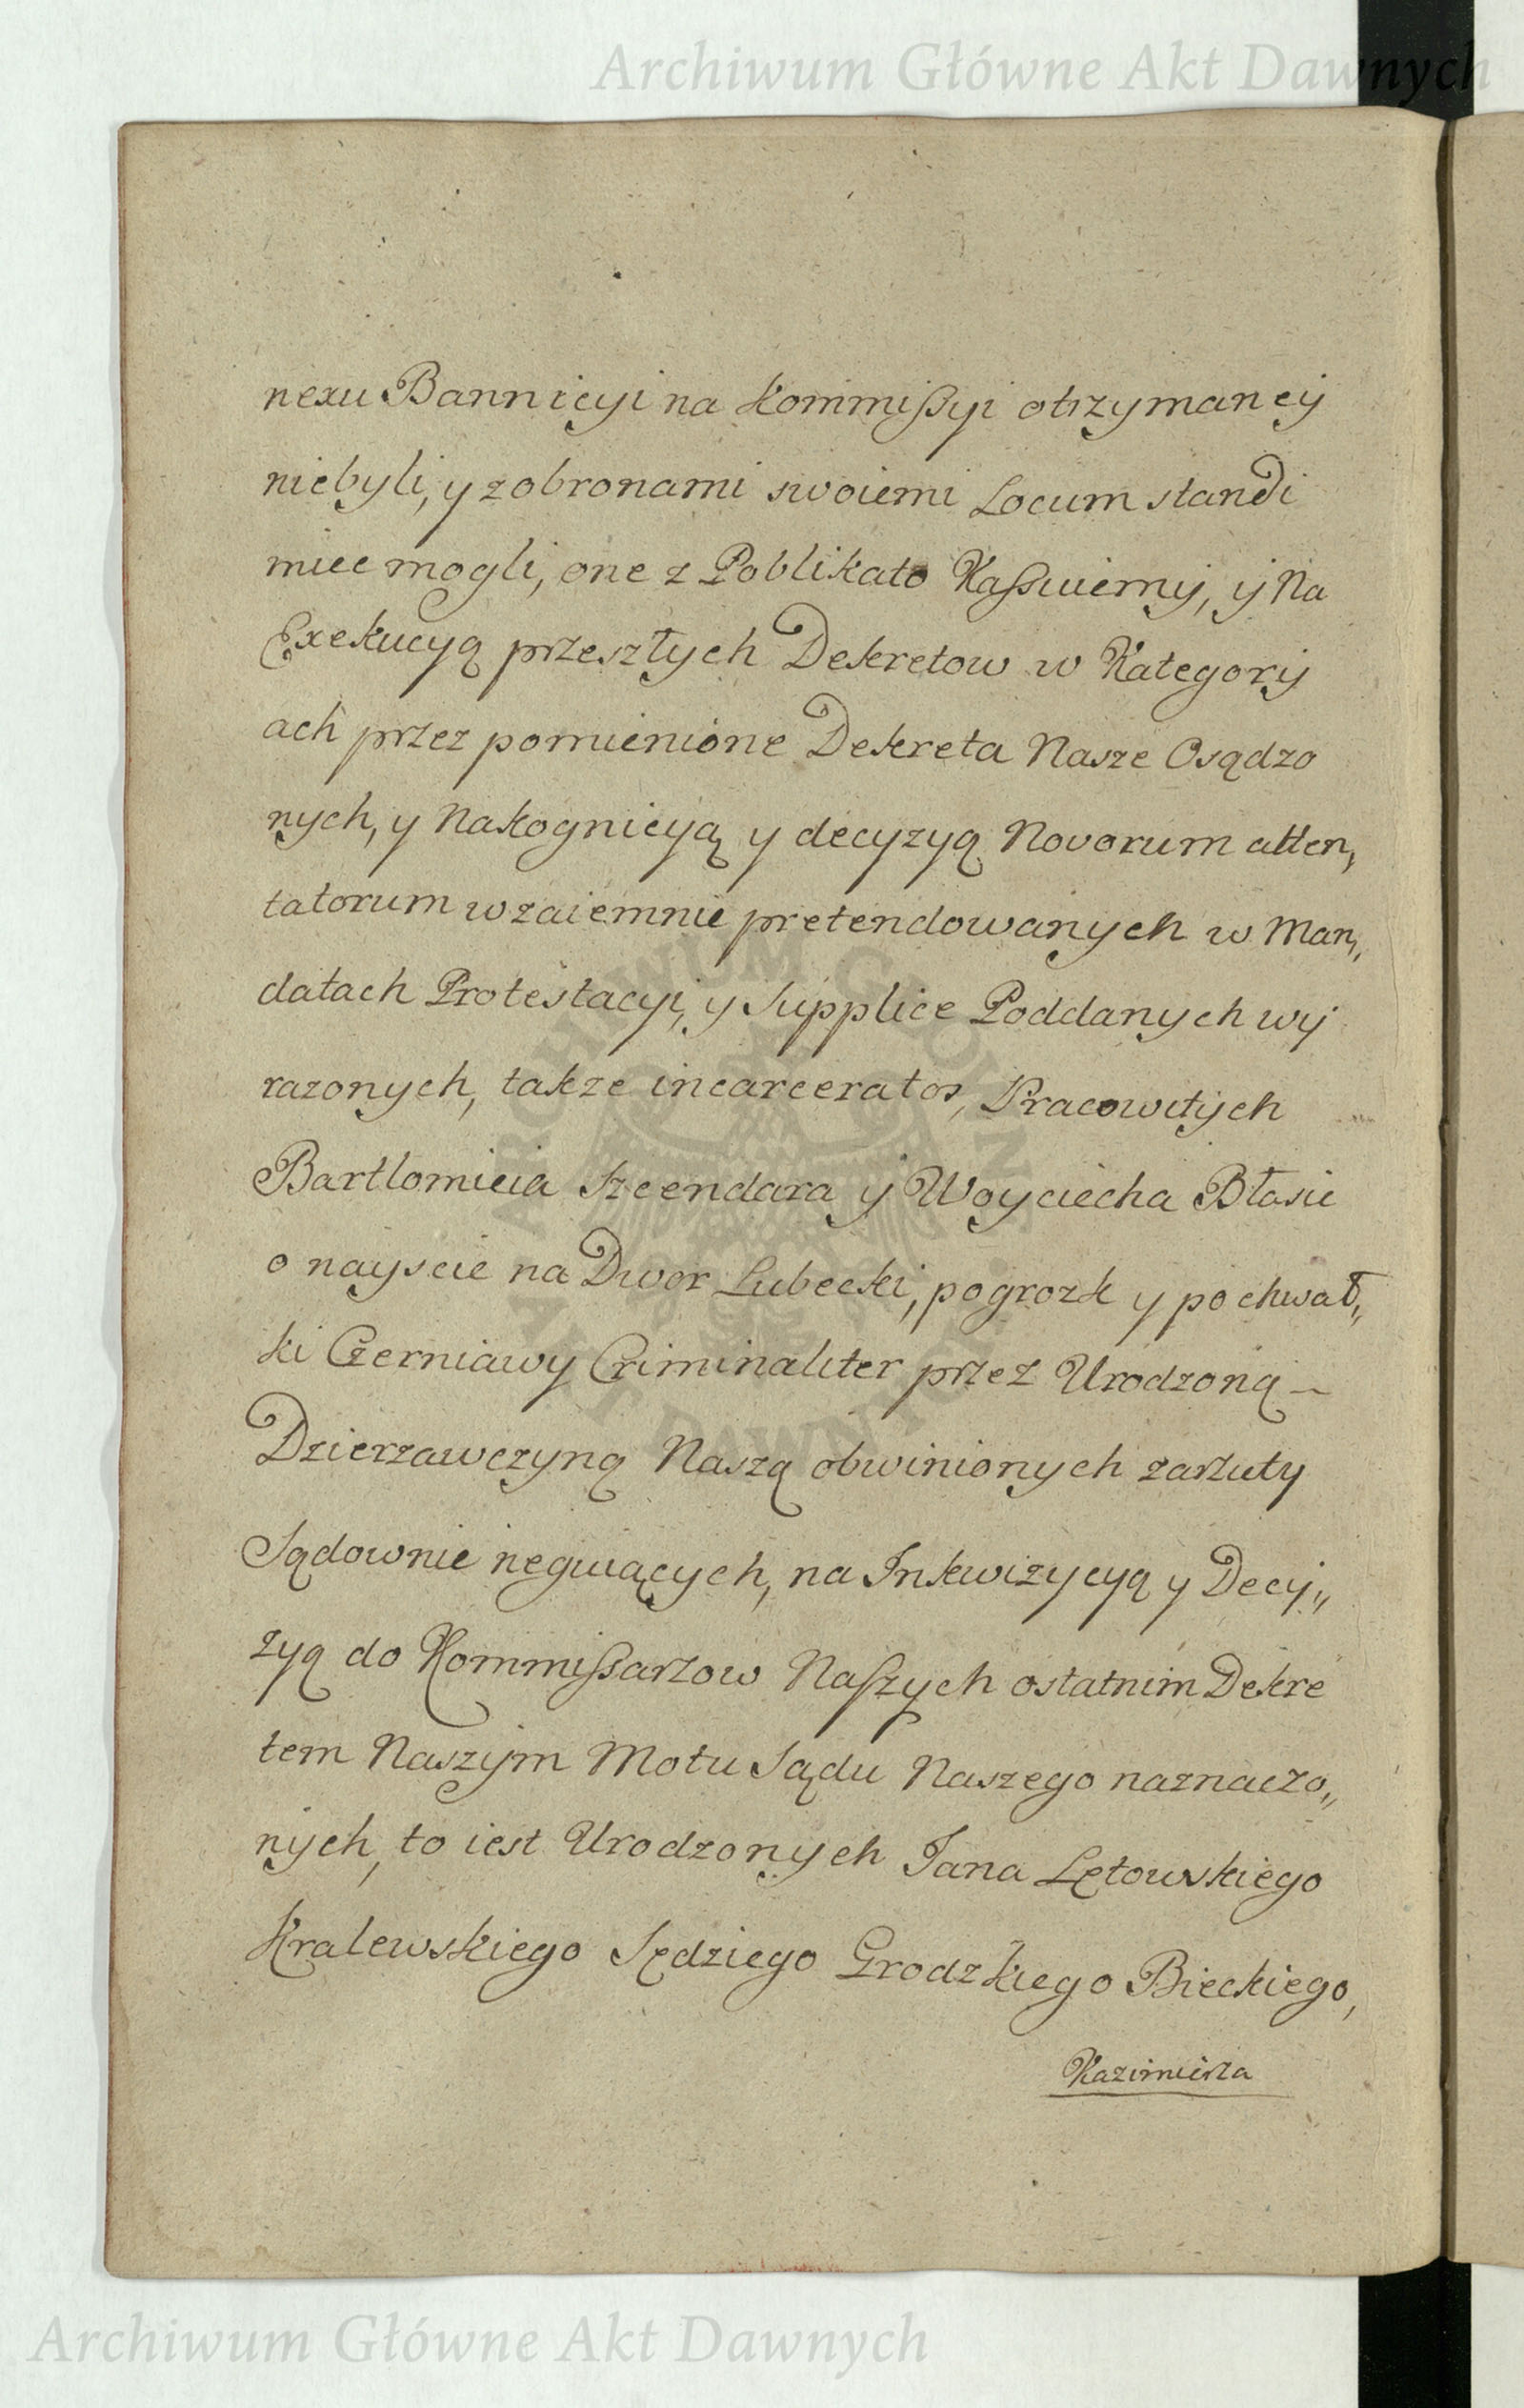 Archiwum Główne Akt Dawnych
nexu Bannicyi na Kommißyi otrzymaney
niebyli, y zobronami swoiemi Locum standi
miec mogli, one z Poblikato Kaßuiemy, y Na
Exekucyą przeszłych Dekretow w Kategory
ach przez pomienione Dekreta Nasze Osądzo
nych, y Nakognicyą y decyzyą Novorum atten,
tatorum wzaiemnie pretendowanych w Man,,
datach Protestacyi, y Supplice Poddanych wy
razonych, takze incarceratos, Pracowitych
Bartlomieia Szcendara y Woyciecha Błasie
o nayscie na Dwor Lubecki, pogrozk y pochwał,,
ki Czerniawy Criminaliter przez Urodzoną
Dzierzawczyną Naszą obwinionych zarzuty
Sądownie neguiących, na Inkwizycyą y Decy,,
zyą do Kommißarzow Naszych ostatnim Dekre
tem Naszym Motu Sądu Naszego naznaczo,,
nych, to iest Urodzonych Jana Lętowskiego
Kralewskiego Sędziego Grodzkiego Bieckiego,
Kazimierza
Archiwum Główne Akt Dawnych